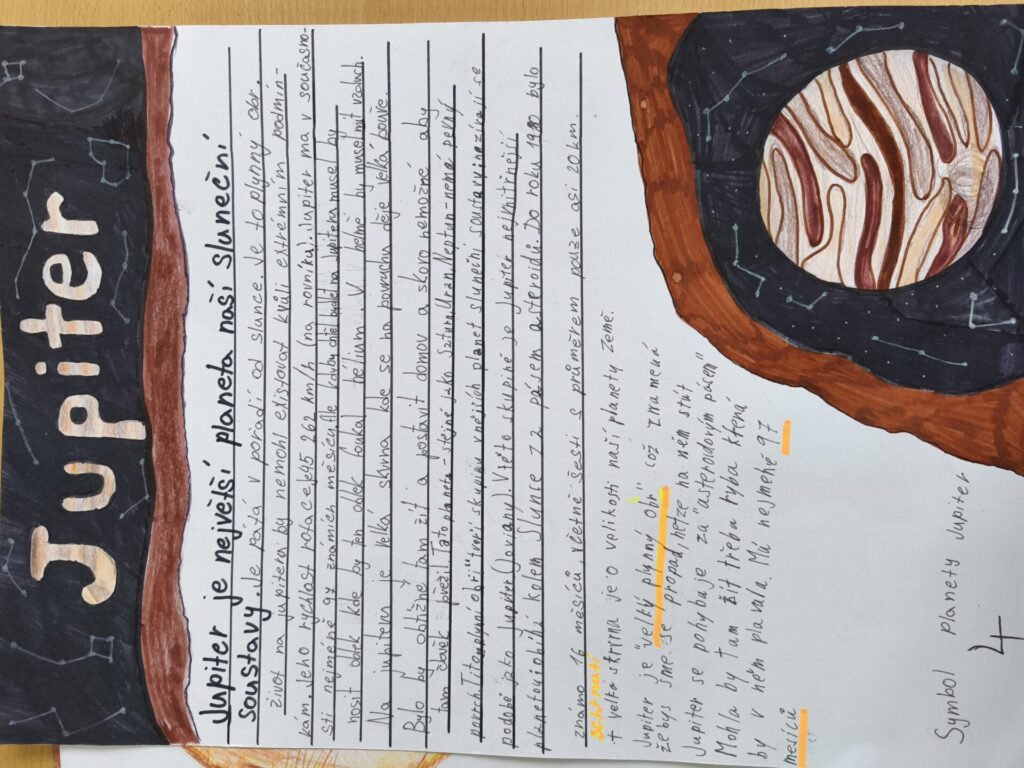 Jupiter
Jupiter je největší planeta naší sluneční
soustavy. Je pátá v pořadí od slunce. Je to plynný obr.
život na jupiteru by nemohl existovat kvůli extrémním podmín-
kám. Jeho rychlost rotace je 45 262 km/h (na rovníku). Jupiter má v současno-
sti nejméně 97 známích měsíců. Ale kdyby chtěl bydlet na Jupiteru musel by
nosit oblek kde by ten oblek foukal hélium. V helmě by musel mít vzduch.
Na jupiteru je velká skvrna kde se na povrchu děje velká bouře.
Bylo by obtížné tam žít a postavit domov a skoro nemožné aby
tam človek přežil. Tato planeta - stejné jako Saturn Uran Neptun - nemá pevný
povrch Tito „plynní obři" tvoří skupinu vnějších planet sluneční soustavy nazívají se
podobě jako Jupiter (Joviany). V této skupině je Jupiter nejvnitřnější
planetou obíhá kolem Slunce za pásem asteroidů. Do roku 1980 bylo
známo 16 měsíců, včetně šesti s průměrem pouze asi 20 km.
SCHRNUTÍ
+ velká skvrna je o velikosti naší planety Země.
Jupiter je "velký plynný obr" což znamená
že bys jsme se propad, nejze na něm stát
Jupiter se pohybuje za "asteroidovým pásem"
Mohla by tam žít třeba ryba která
by v něm plavala. Má nejméně 97
mesíců
Symbol planety Jupiter